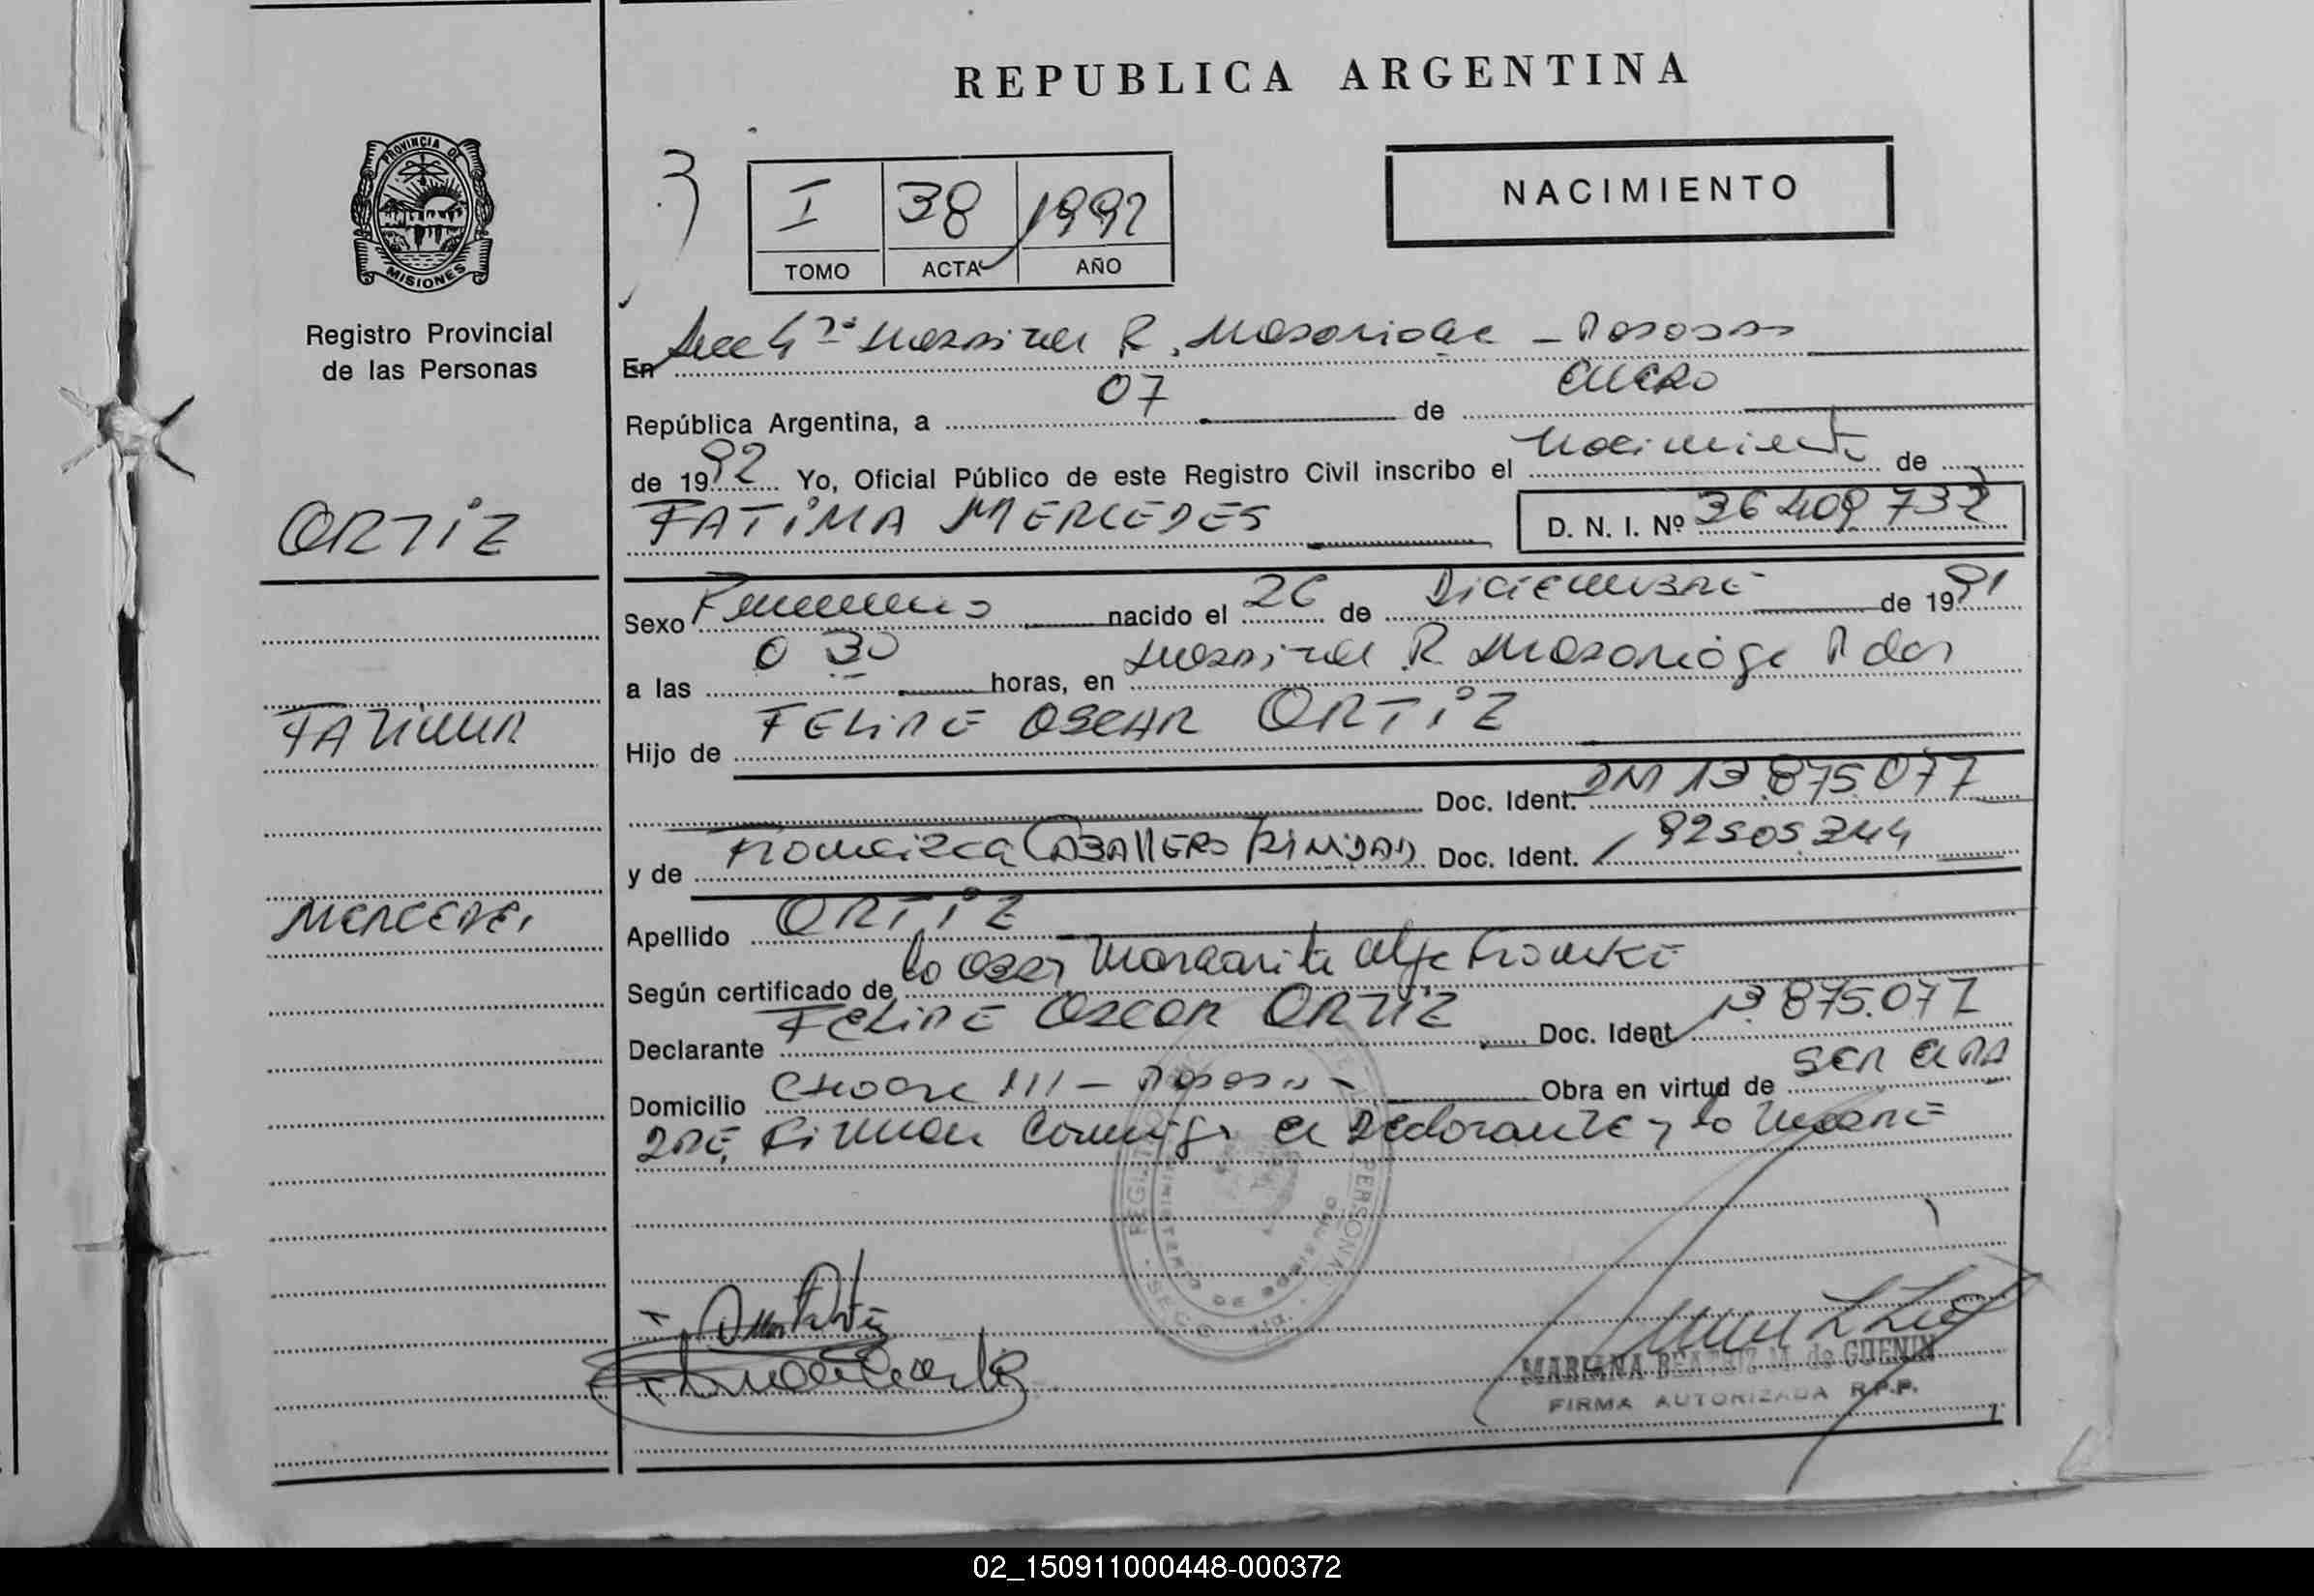 REPUBLICA ARGENTINA
PROVINCIA DE
MISIONES
Registro Provincial
de las Personas
NACIMIENTO
I 38 1992
TOMO ACTA AÑO
En Secc 4ª Hospital R. Madariaga - Posadas
República Argentina, a 07 de Enero
de 1992 Yo, Oficial Público de este Registro Civil inscribo el Nacimiento de
ORTIZ
FATIMA MERCEDES
D. N. I. Nº 36409732
Sexo Femenino nacido el 26 de Diciembre de 1991
a las 0 30 horas, en Hospital R. Madariaga Pdas
FATIMA
Hijo de FELIPE OSCAR ORTIZ
Doc. Ident. DNI 13.875.077
y de Francisca CABALLERO TRINIDAD Doc. Ident. 92505244
MERCEDES
Apellido ORTIZ
Según certificado de la Obst Margarita
Declarante FELIPE OSCAR ORTIZ Doc. Ident 13.875.077
Domicilio Posadas - Obra en virtud de ser el pa
dre, Firman Conmigo el Declarante y la Madre
MARIANA BEATRIZ M. de GUENIN
FIRMA AUTORIZADA R.P.P.
02_150911000448-000372